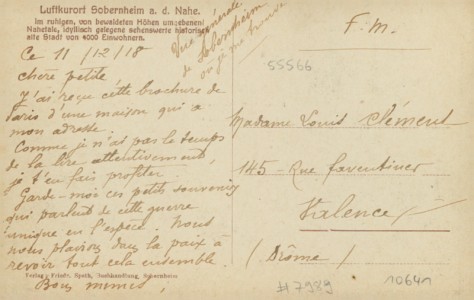 Luftkurort Sobernheim a. d. Nahe.
Im ruhigen, von bewaldeten Höhen umgebenen
Nahetale, idyllisch gelegene sehenswerte historisch
alte Stadt von 4000 Einwohnern.
Vue générale
de Sobernheim
où je me trouve
Ce 11/12/18
chère petite
J'ai reçu cette brochure de
Paris d'une maison qui a
mon adresse.
Comme je n'ai pas le temps
de la lire attentivement,
je t'en fais profiter.
Garde-moi ces petits souvenirs
qui parlent de cette guerre
unique en l'espèce. Nous
nous plairons dans la paix à
revoir tout cela ensemble.
Verlag v. Friedr. Speth, Buchhandlung, Sobernheim
Bons mimis,
F. M.
55566
Madame Louis Clément
145 - Rue faventines
Valence
(Drôme)
#7989
10641